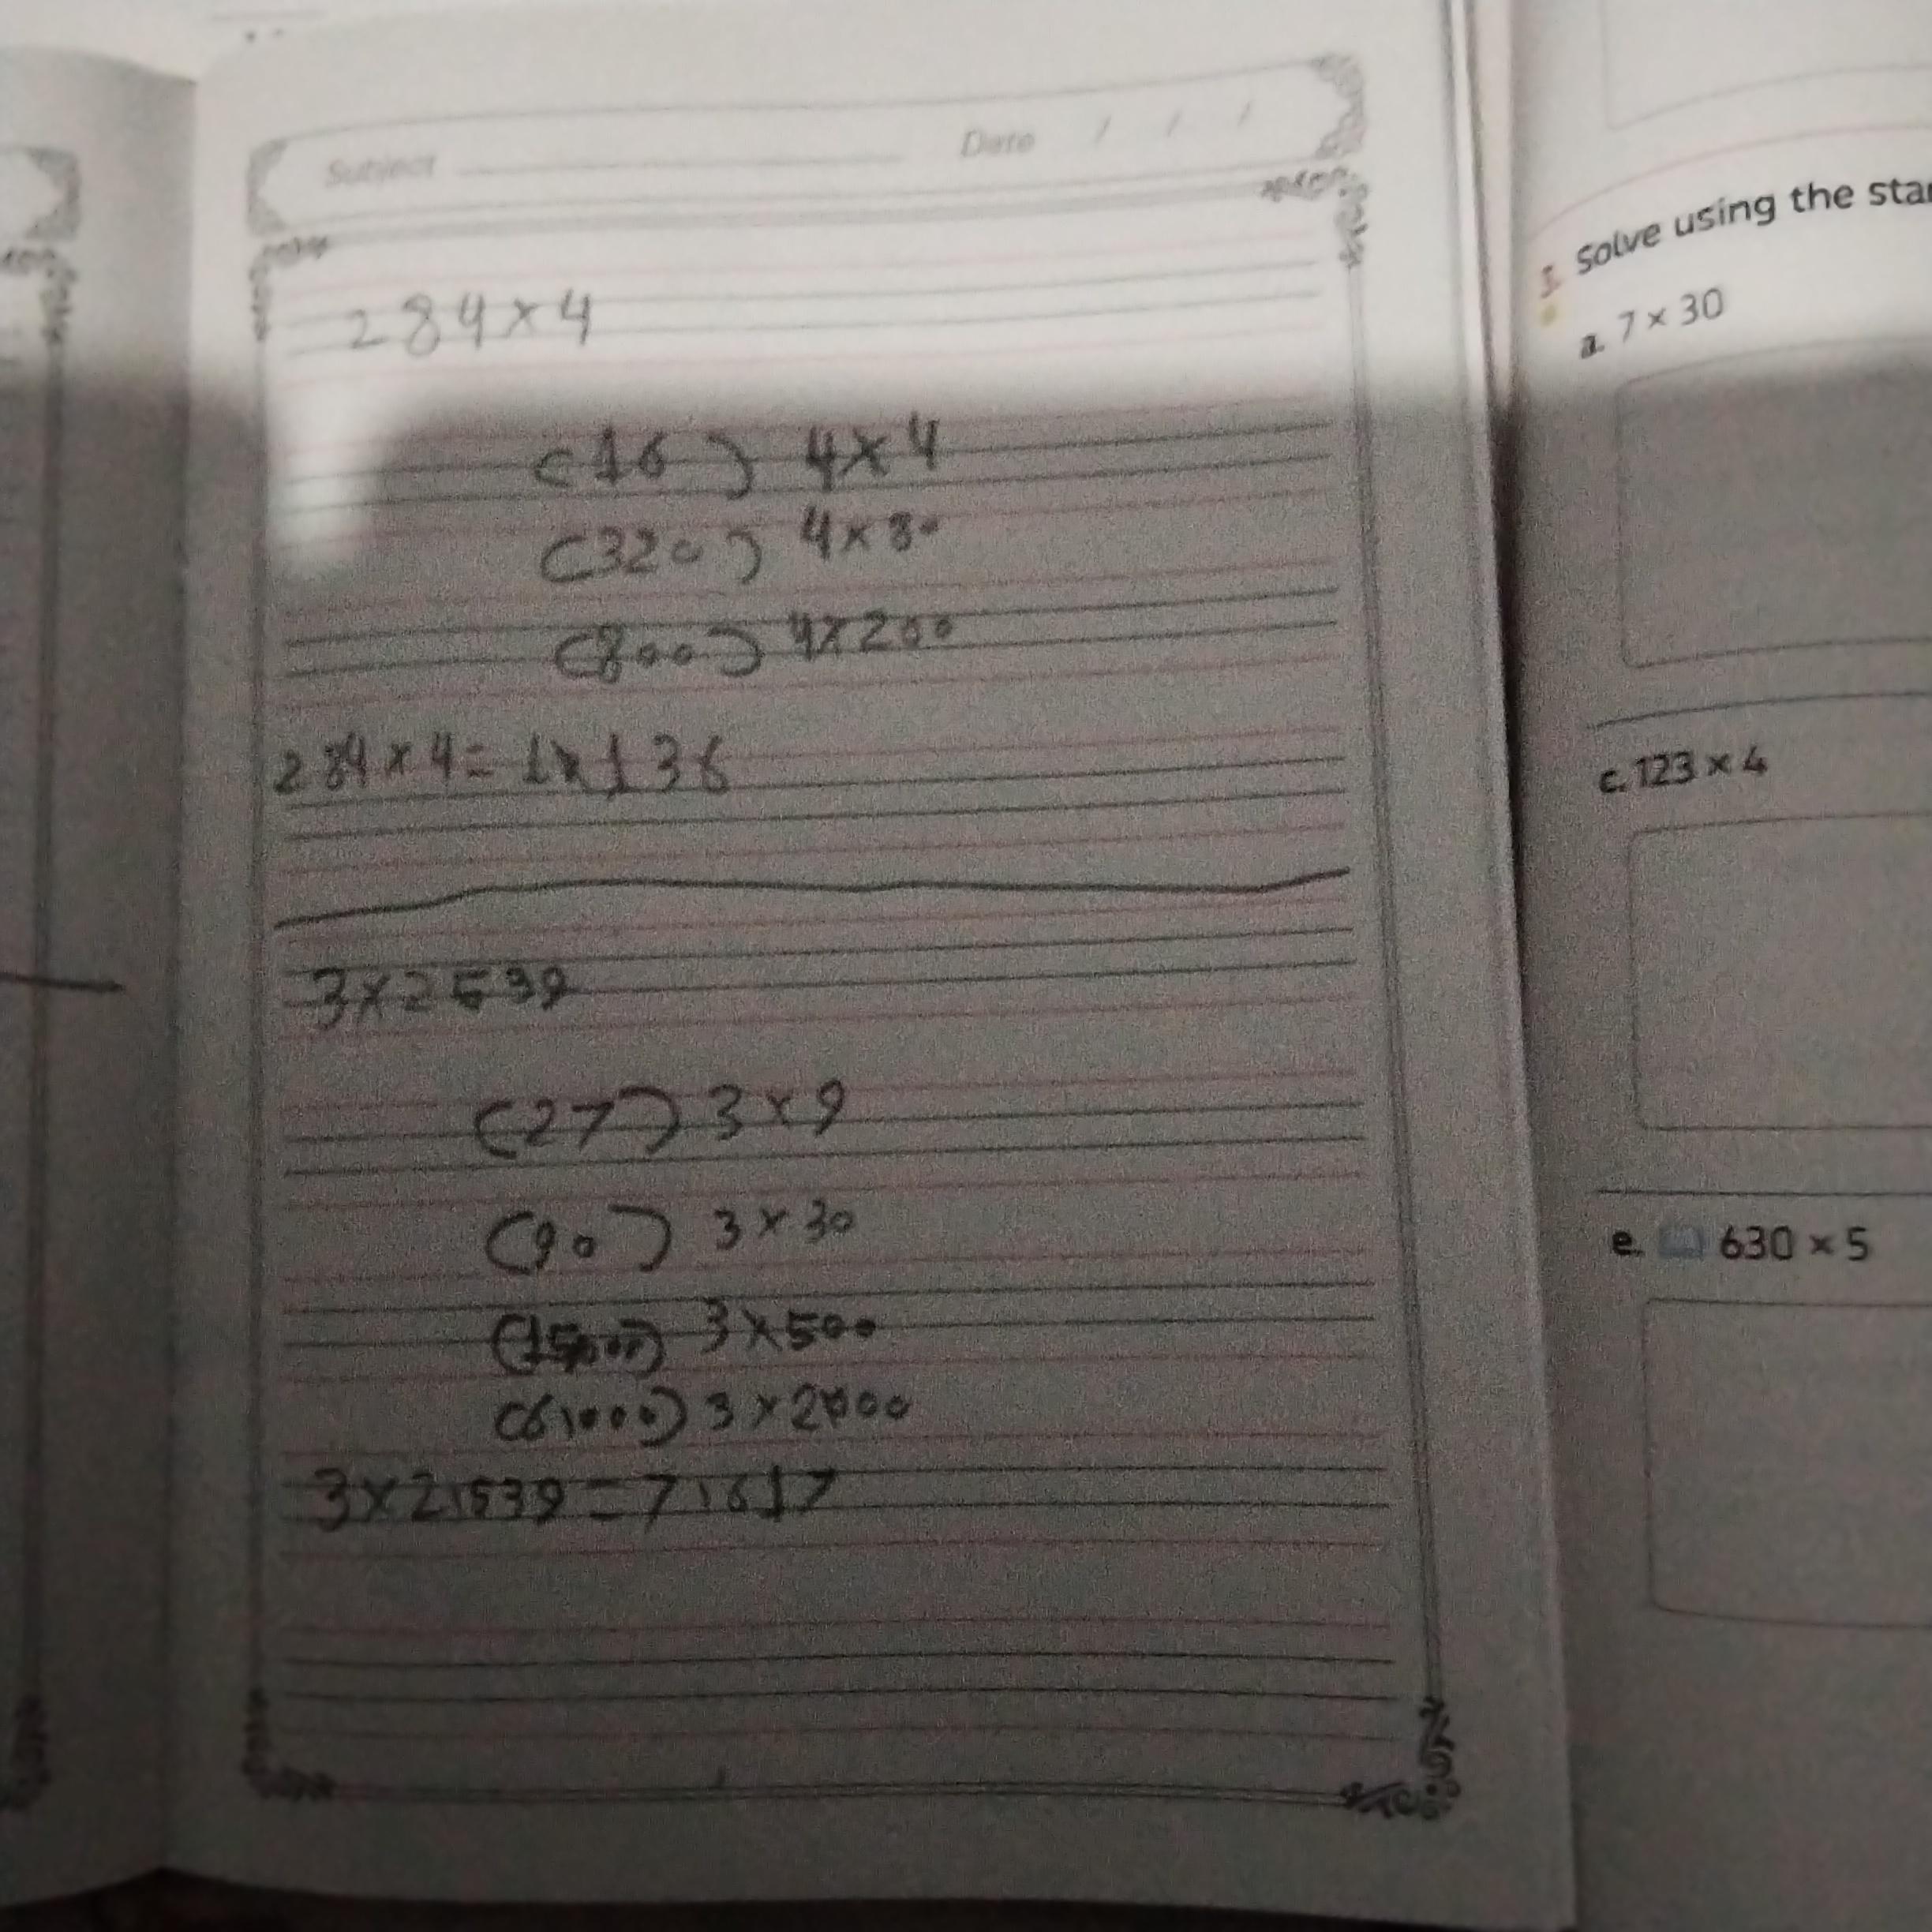 Subject Date / / /
284×4
(16) 4×4
(320) 4×80
(800) 4×200
284×4=1,136
3×2539
(27) 3×9
(90) 3×30
3×500
(6,000) 3×2000
3×2,539=7,617
1. Solve using the
a. 7 × 30
c. 123 × 4
e. 630 × 5